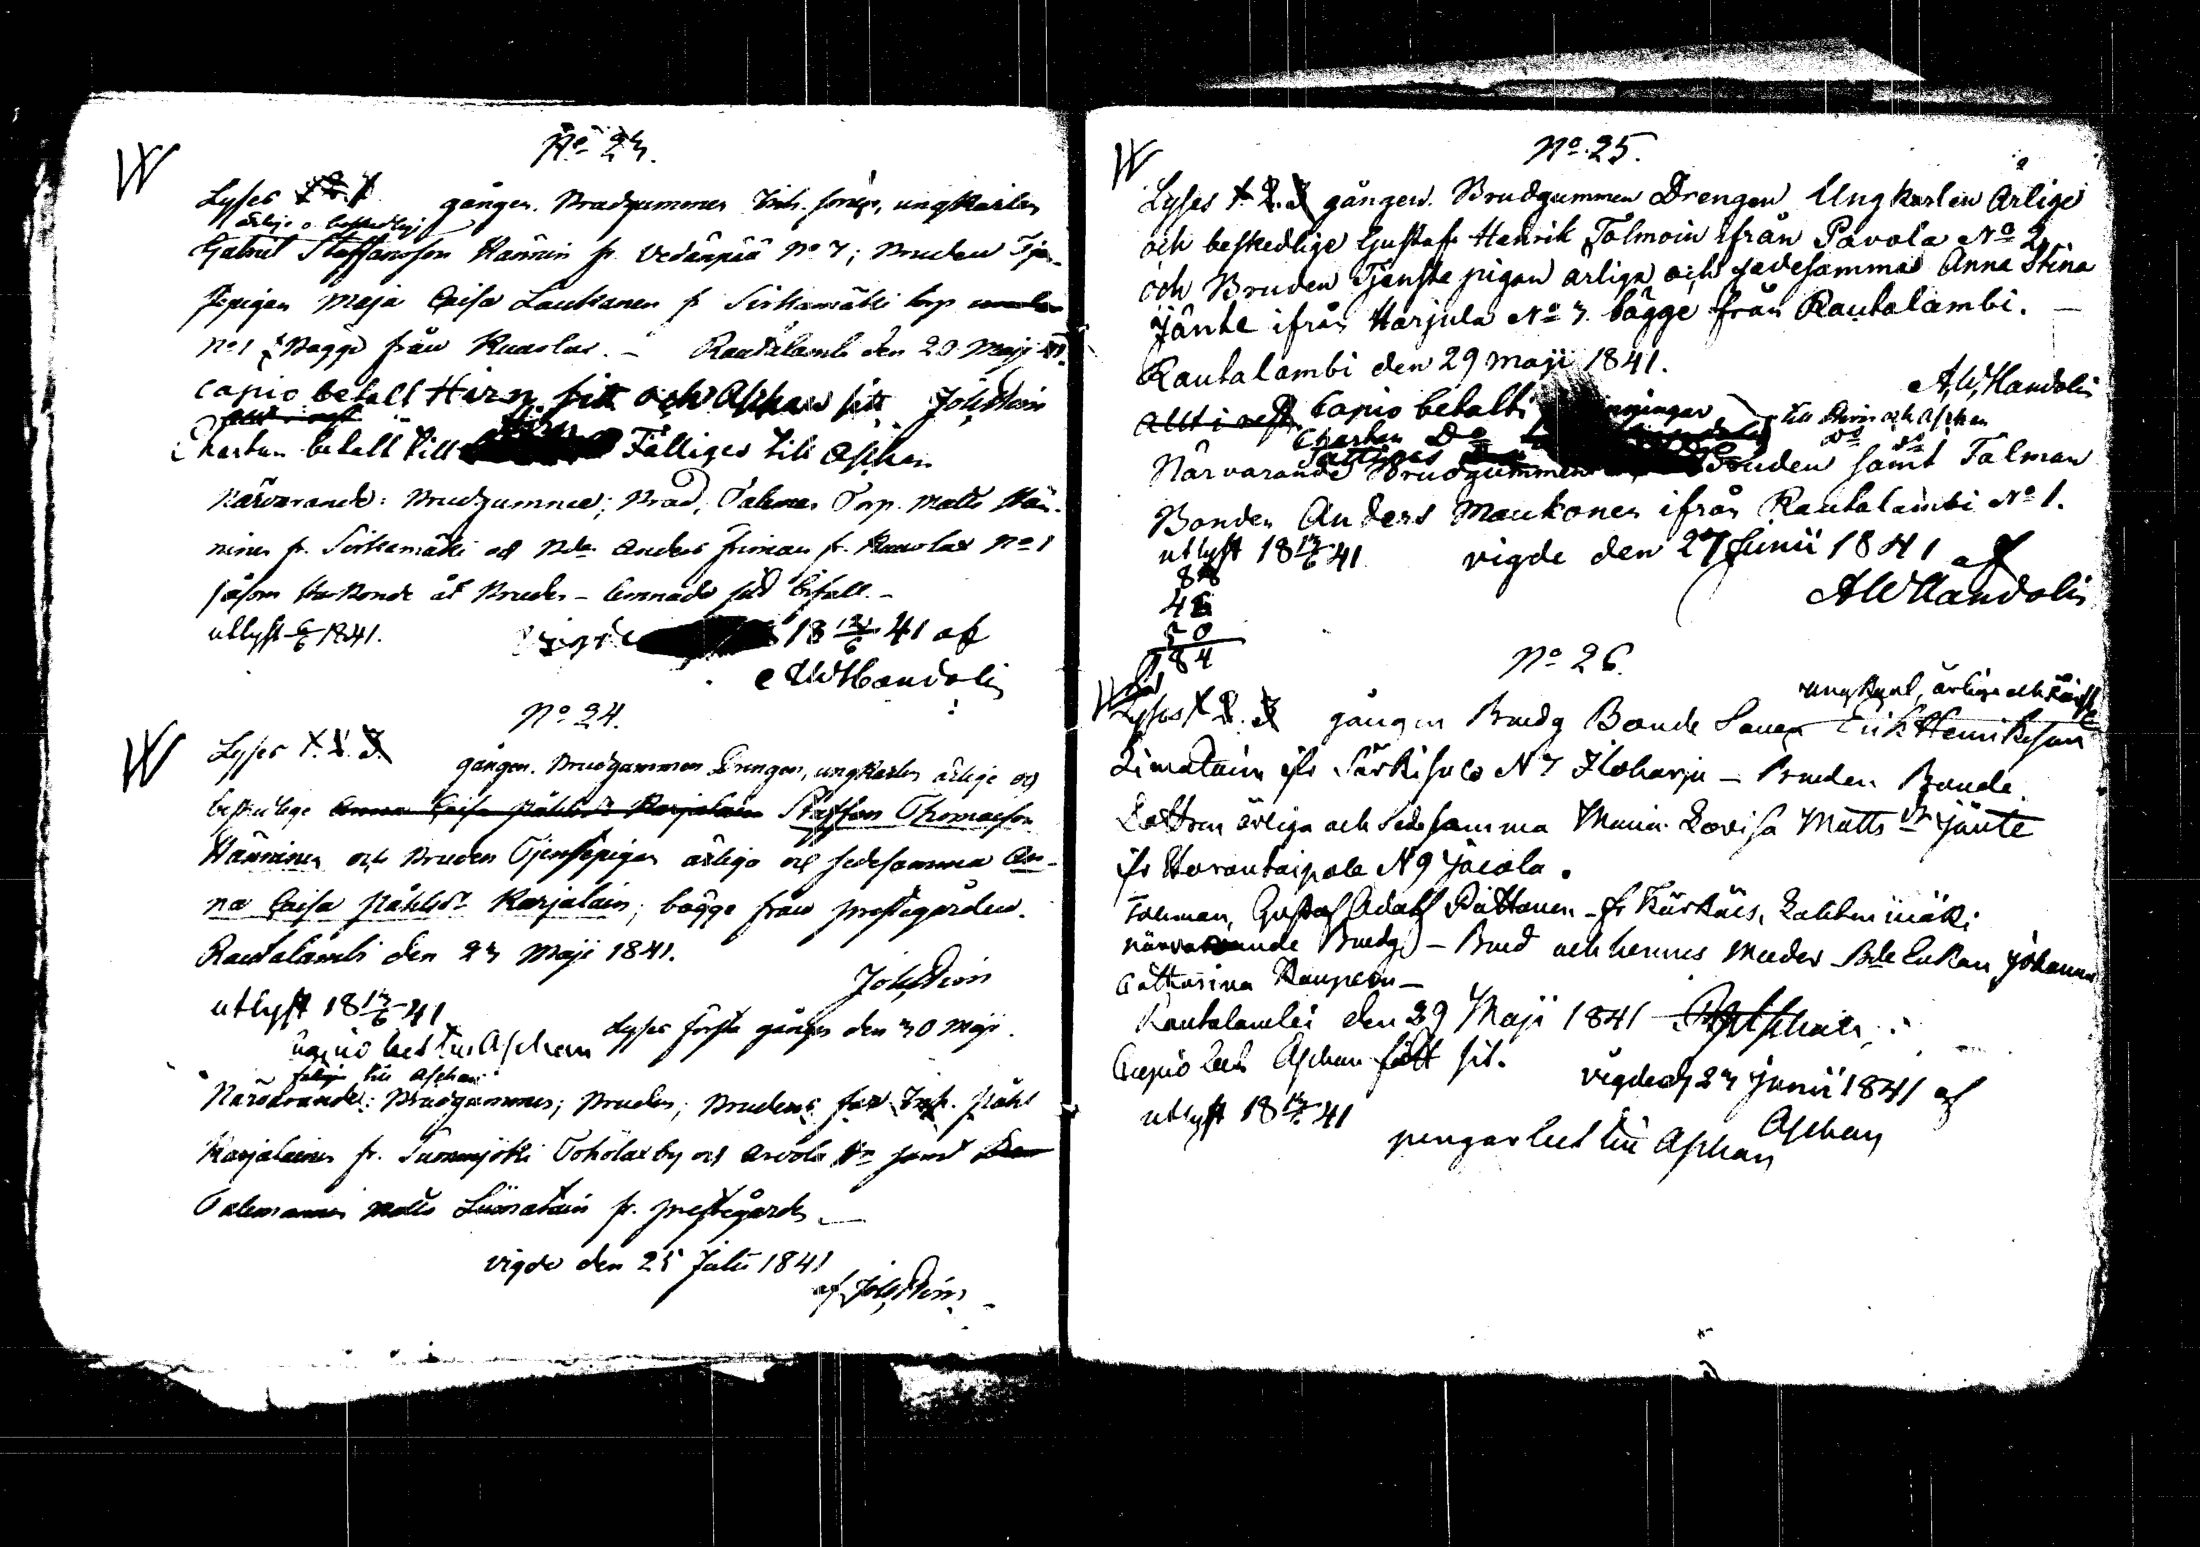 No 23.
Lyses 1. 2. 3. gången. Brudgummen Inh. son, ungkarlen
ärlige o beskedlige
Gabriel Staffansson Hännin fr. Vedänpää No 7; Bruden Tjen-
stepigan Maja Caisa Laukanen fr Sirkamäki torp
No 1 Bägge från Kuuslax. – Rautalambi den 29 Maji 41.
Capio betalt Hirn sitt och Aschan sitt Joh. Hirn
Chartan betalt till Hirn Fattiges till Aschan
Närvarande: Brudgummen; Brud, Talman Torp. Matts Hän-
ninen fr. Sirkamäki och Bde Anders fr. Kuuslax No 1
såsom Husbonde åt Bruden – lemnade sitt bifall. –
utlyst 6/6 1841.
vigde 18 24/6 41 af
AWHandolin
No 24.
Lyses 1. 2. 3.
gången. Brudgummen Drengen, ungkarlen ärlige och
beskedlige Anna Caisa Påhlsdr Karjalain Staffan Thomasson
Hänninen och Bruden Tjenstepigan ärliga och sedesamma An-
na Caisa Påhlsdr Karjalain; bägge från prestegården.
Rautalambi den 23 Maji 1841.
Joh. Hirn
utlyst 18 13/6 41
Lyses första gången den 30 Maji.
Capio bet till Aschan
fattiga till Aschan
Närvarande: Brudgummen; Bruden; Brudens far Inh. Påhl
Karjalainen fr. Suonenjoki Toholax by och Arvola samt
Talemannen Matts Liimatain fr. prestegården. –
vigde den 25 Julii 1841
af Joh. Hirn
No 25.
Lyses 1. 2. 3 gången. Brudgummen Drengen Ungkarlen ärlige
och beskedlige Gustaf Henrik Tolmoin ifrån Pavola No 2,
och Bruden Tjenste pigan ärliga och sedesamma Anna Stina
Jänte ifrån Harjula No 3. bägge från Rautalambi. –
Rautalambi den 29 Maji 1841.
A, W, Handolin
Allt i rest Capio betalt till Hirn och Aschan
Chartan Do Do Do
Fattiges
Närvarande Brudgummen Bruden samt Talman
Bonden Anders Maukonen ifrån Rautalambi No 1.
utlyst 18 13/6 41 vigde den 27 Junii 1841 af
AWHandolin
88
46
50
184
No 26.
ungkarl, ärlige och
Lyses 1. 2. 3 gången Brudg Bonde Sonen Erik Henriksson
Limatain ifr Särkisalo N 7 Iloharju – Bruden Bonde
Dottren ärliga och Sedesamma Maria Lovisa Matts dr Jänte
ifr Horontaipale N 9 Jäiola.
Talman, Gustaf Adolf Puttonen fr Kärkäis, Lahdenmäki
närvarande Brudg – Brud och hennes Moder Bde Enkan Johanna
Catharina Kauppin –
Rautalambi den 29 Maji 1841 Aschan
Capio bet Aschan fått sit.
vigde d 27 Junii 1841 af
Aschan
utlyst 18 13/6 41
pengar bet till Aschan